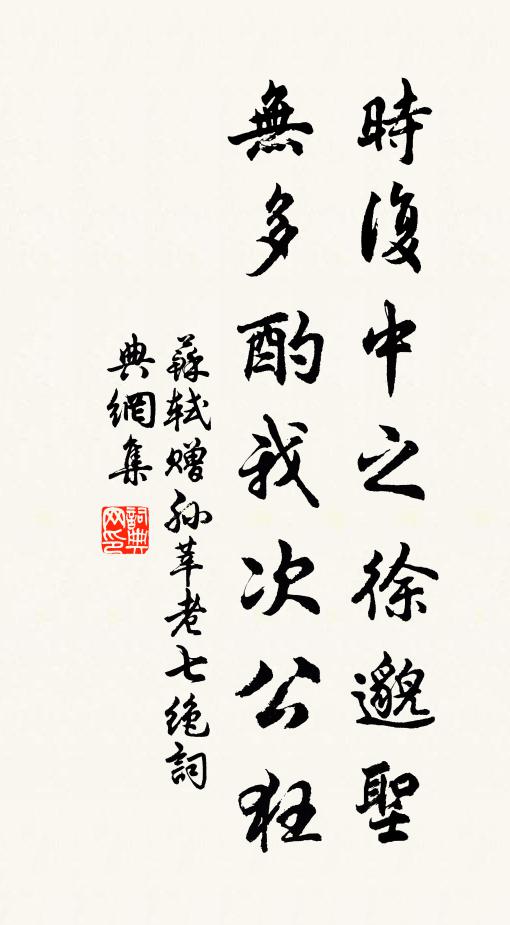 時復中之徐邈聖
無多酌我次公狂
蘇軾贈孫莘老七絶詞
典網集
詞典網印